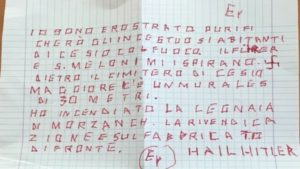 Ep
IO SONO EROSTRATO PURIFI
CHERÒ GLI INCESTUOSI ABITANTI
DI CESIO COL FUOCO. IL FÜHRER
E S. MELONI MI ISPIRANO. 卐
DIETRO IL CIMITERO DI CESIO
MAGGIORE C'È UN MURALES
DI 30 METRI.
HO INCENDIATO LA LEGNAIA
DI MORZANCH. LA RIVENDICA
ZIONE È SUL FABBRICATO
DI FRONTE.
Ep HAIL HITLER